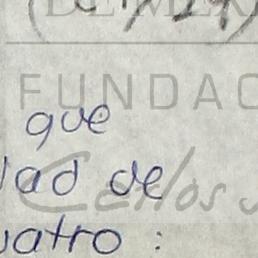 DE MER
FUNDAC
que
dad de
Carlos
uatro :